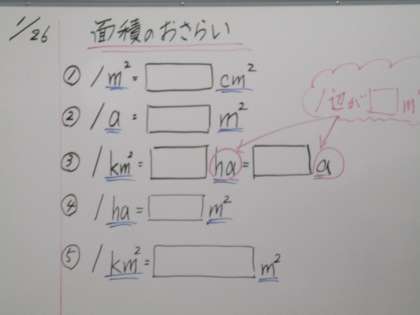 1/26
面積のおさらい
① 1m²=□cm²
② 1a=□m²
③ 1km²=□ha=□a
1辺が□m
④ 1ha=□m²
⑤ 1km²=□m²